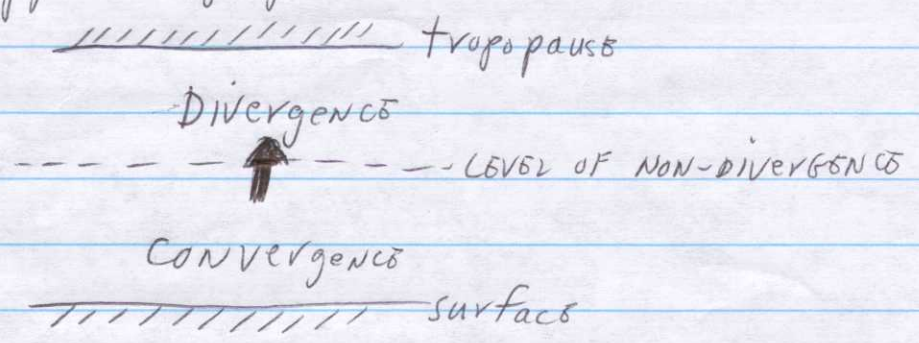 tropopause
Divergence
LEVEL OF NON-DIVERGENCE
Convergence
surface